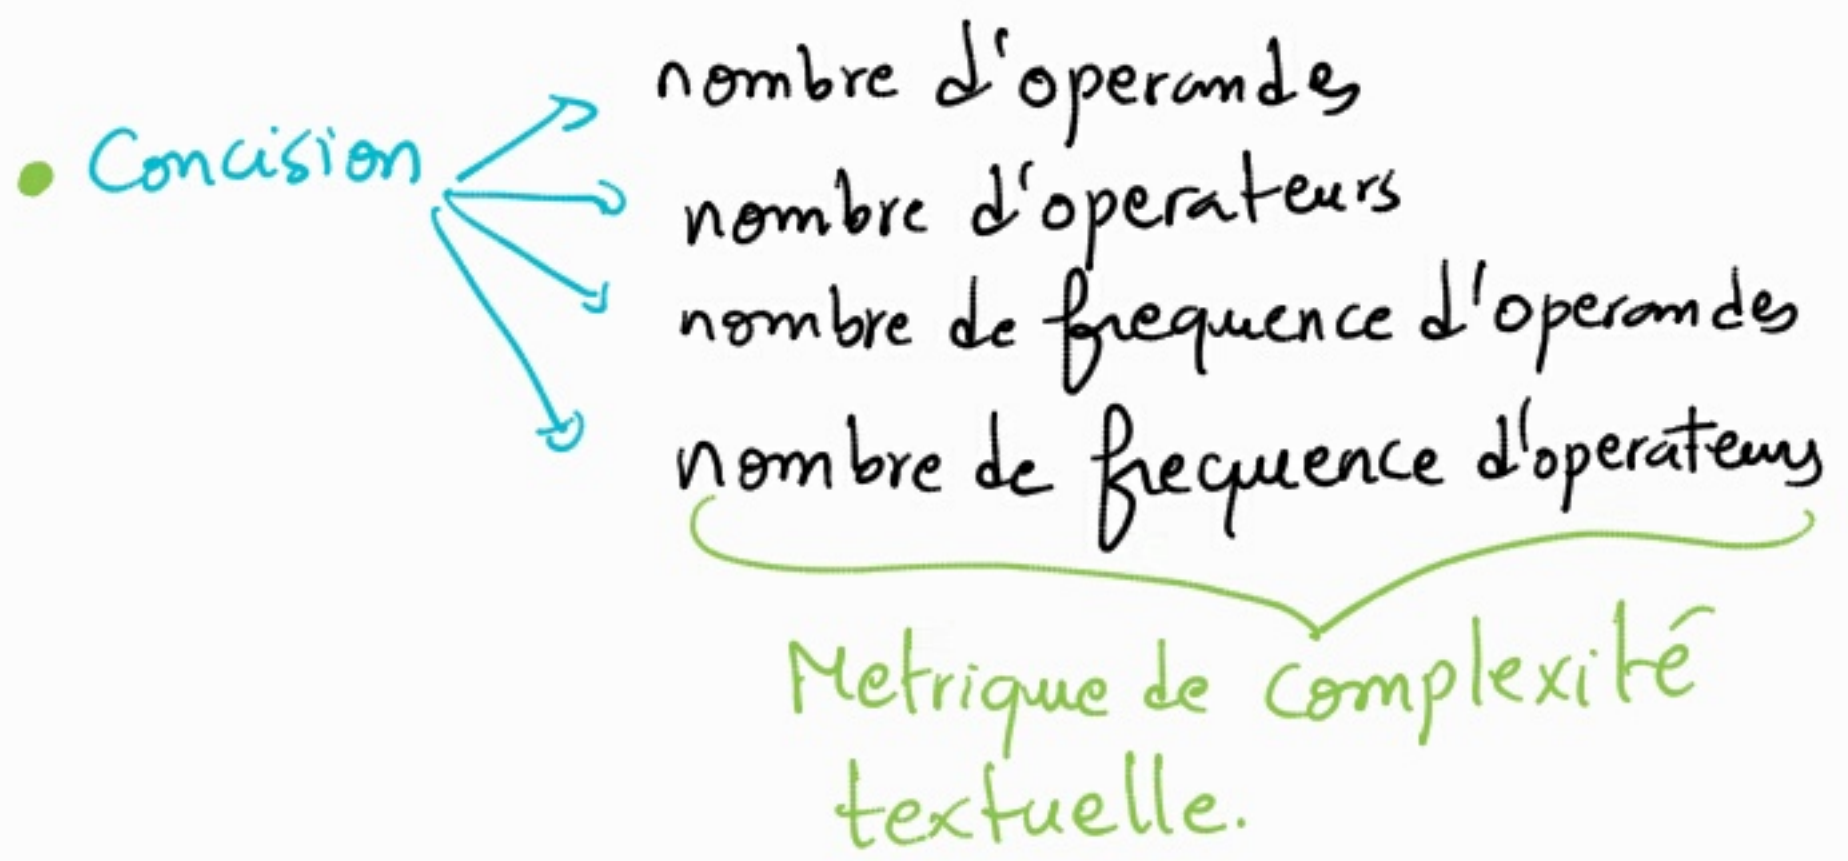 nombre d'operandes
• Concision
nombre d'operateurs
nombre de frequence d'operandes
nombre de frequence d'operateurs
Metrique de complexité
textuelle.